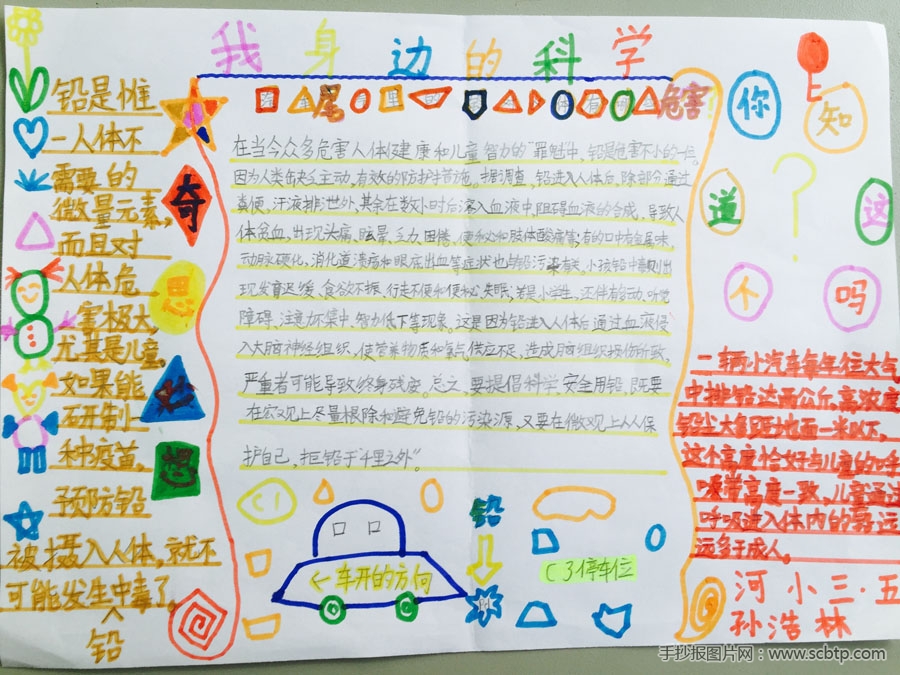 我身边的科学
尾
危害
铅是惟
一人体不
需要的
微量元素，
而且对
人体危
害极大，
尤其是儿童。
如果能
研制一
种疫苗，
预防铅
被摄入人体，就不
可能发生铅中毒了。
奇
思
妙
想
在当今众多危害人体健康和儿童智力的“罪魁”中，铅是危害不小的一员。
因为人类缺乏主动、有效的防护措施。据调查，铅进入人体后，除部分通过
粪便，汗液排泄外，其余在数小时后溶入血液中，阻碍血液的合成，导致人
体贫血，出现头痛、眩晕、乏力、困倦、便秘和肢体酸痛等；有的口中有金属味，
动脉硬化、消化道溃疡和眼底出血等症状也与铅污染有关。小孩铅中毒则出
现发育迟缓、食欲不振、行走不便和便秘、失眠；若是小学生，还伴有多动、听觉
障碍、注意力不集中、智力低下等现象。这是因为铅进入人体后通过血液侵
入大脑神经组织，使营养物质和氧气供应不足，造成脑组织损伤所致，
严重者可能导致终身残废。总之，要提倡科学、安全用铅，既要
在宏观上尽量根除和避免铅的污染源，又要在微观上从人保
护自己，拒铅于“千里之外”。
铅
←车开的方向
C3停车位
你知
道这
个吗
?
一辆小汽车每年位大气
中排铅达两公斤，高浓度
铅尘大多距地面一米以下，
这个高度恰好与儿童的呼
吸带高度一致，儿童通过
呼吸进入体内的铅远
远多于成人。
河小三·五
孙浩林
手抄报图片网：www.scbtp.com